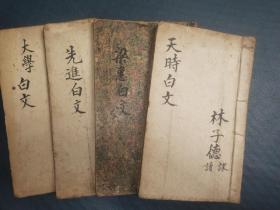 大學白文
先進白文
梁惠白文
天時白文
林子德
課讀